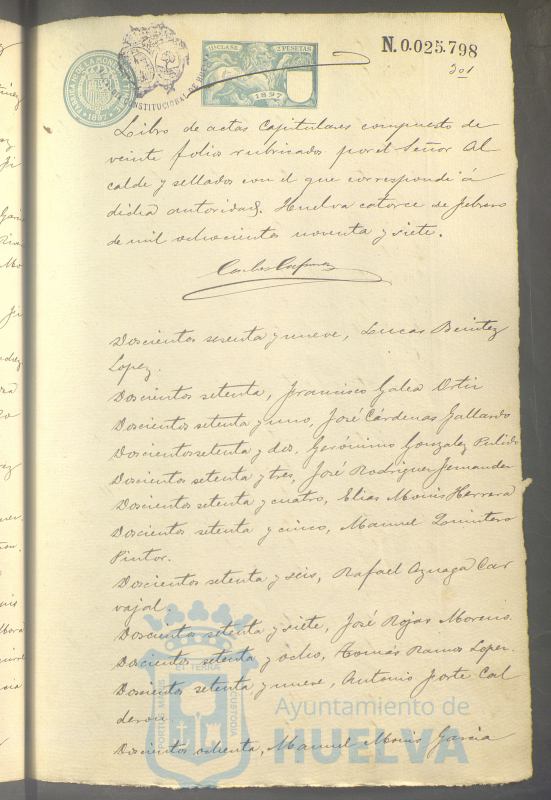 N.0.025.798
201
11ª CLASE 2 PESETAS
1897
1897
CONSTITUCIONAL DE
Libro de actas Capitulares compuesto de
veinte folios rubricados por el Señor Al
calde y sellados con el que corresponde á
dicha autoridad. Huelva catorce de febrero
de mil ochocientos noventa y siete.
Doscientos sesenta y nueve, Lucas Benitez
Lopez.
Doscientos setenta, Francisco Galea Ortiz
Doscientos setenta y uno, José Cárdenas Gallardo
Doscientos setenta y dos, Gerónimo Gonzalez Pulido
Doscientos setenta y tres, José Rodriguez Fernandez
Doscientos setenta y cuatro, Elias Moinis Herrera
Doscientos setenta y cinco, Manuel Quintero
Pintor.
Doscientos setenta y seis, Rafael Aznaga Car
vajal.
Doscientos setenta y siete, José Rojas Moreno.
Doscientos setenta y ocho, Tomás Ramos Lopez.
Doscientos setenta y nueve, Antonio Forte Cal
deron
Doscientos ochenta, Manuel Moinis Garcia
PORTUS MARIS ET TERRÆ CUSTODIA
Ayuntamiento de
HUELVA